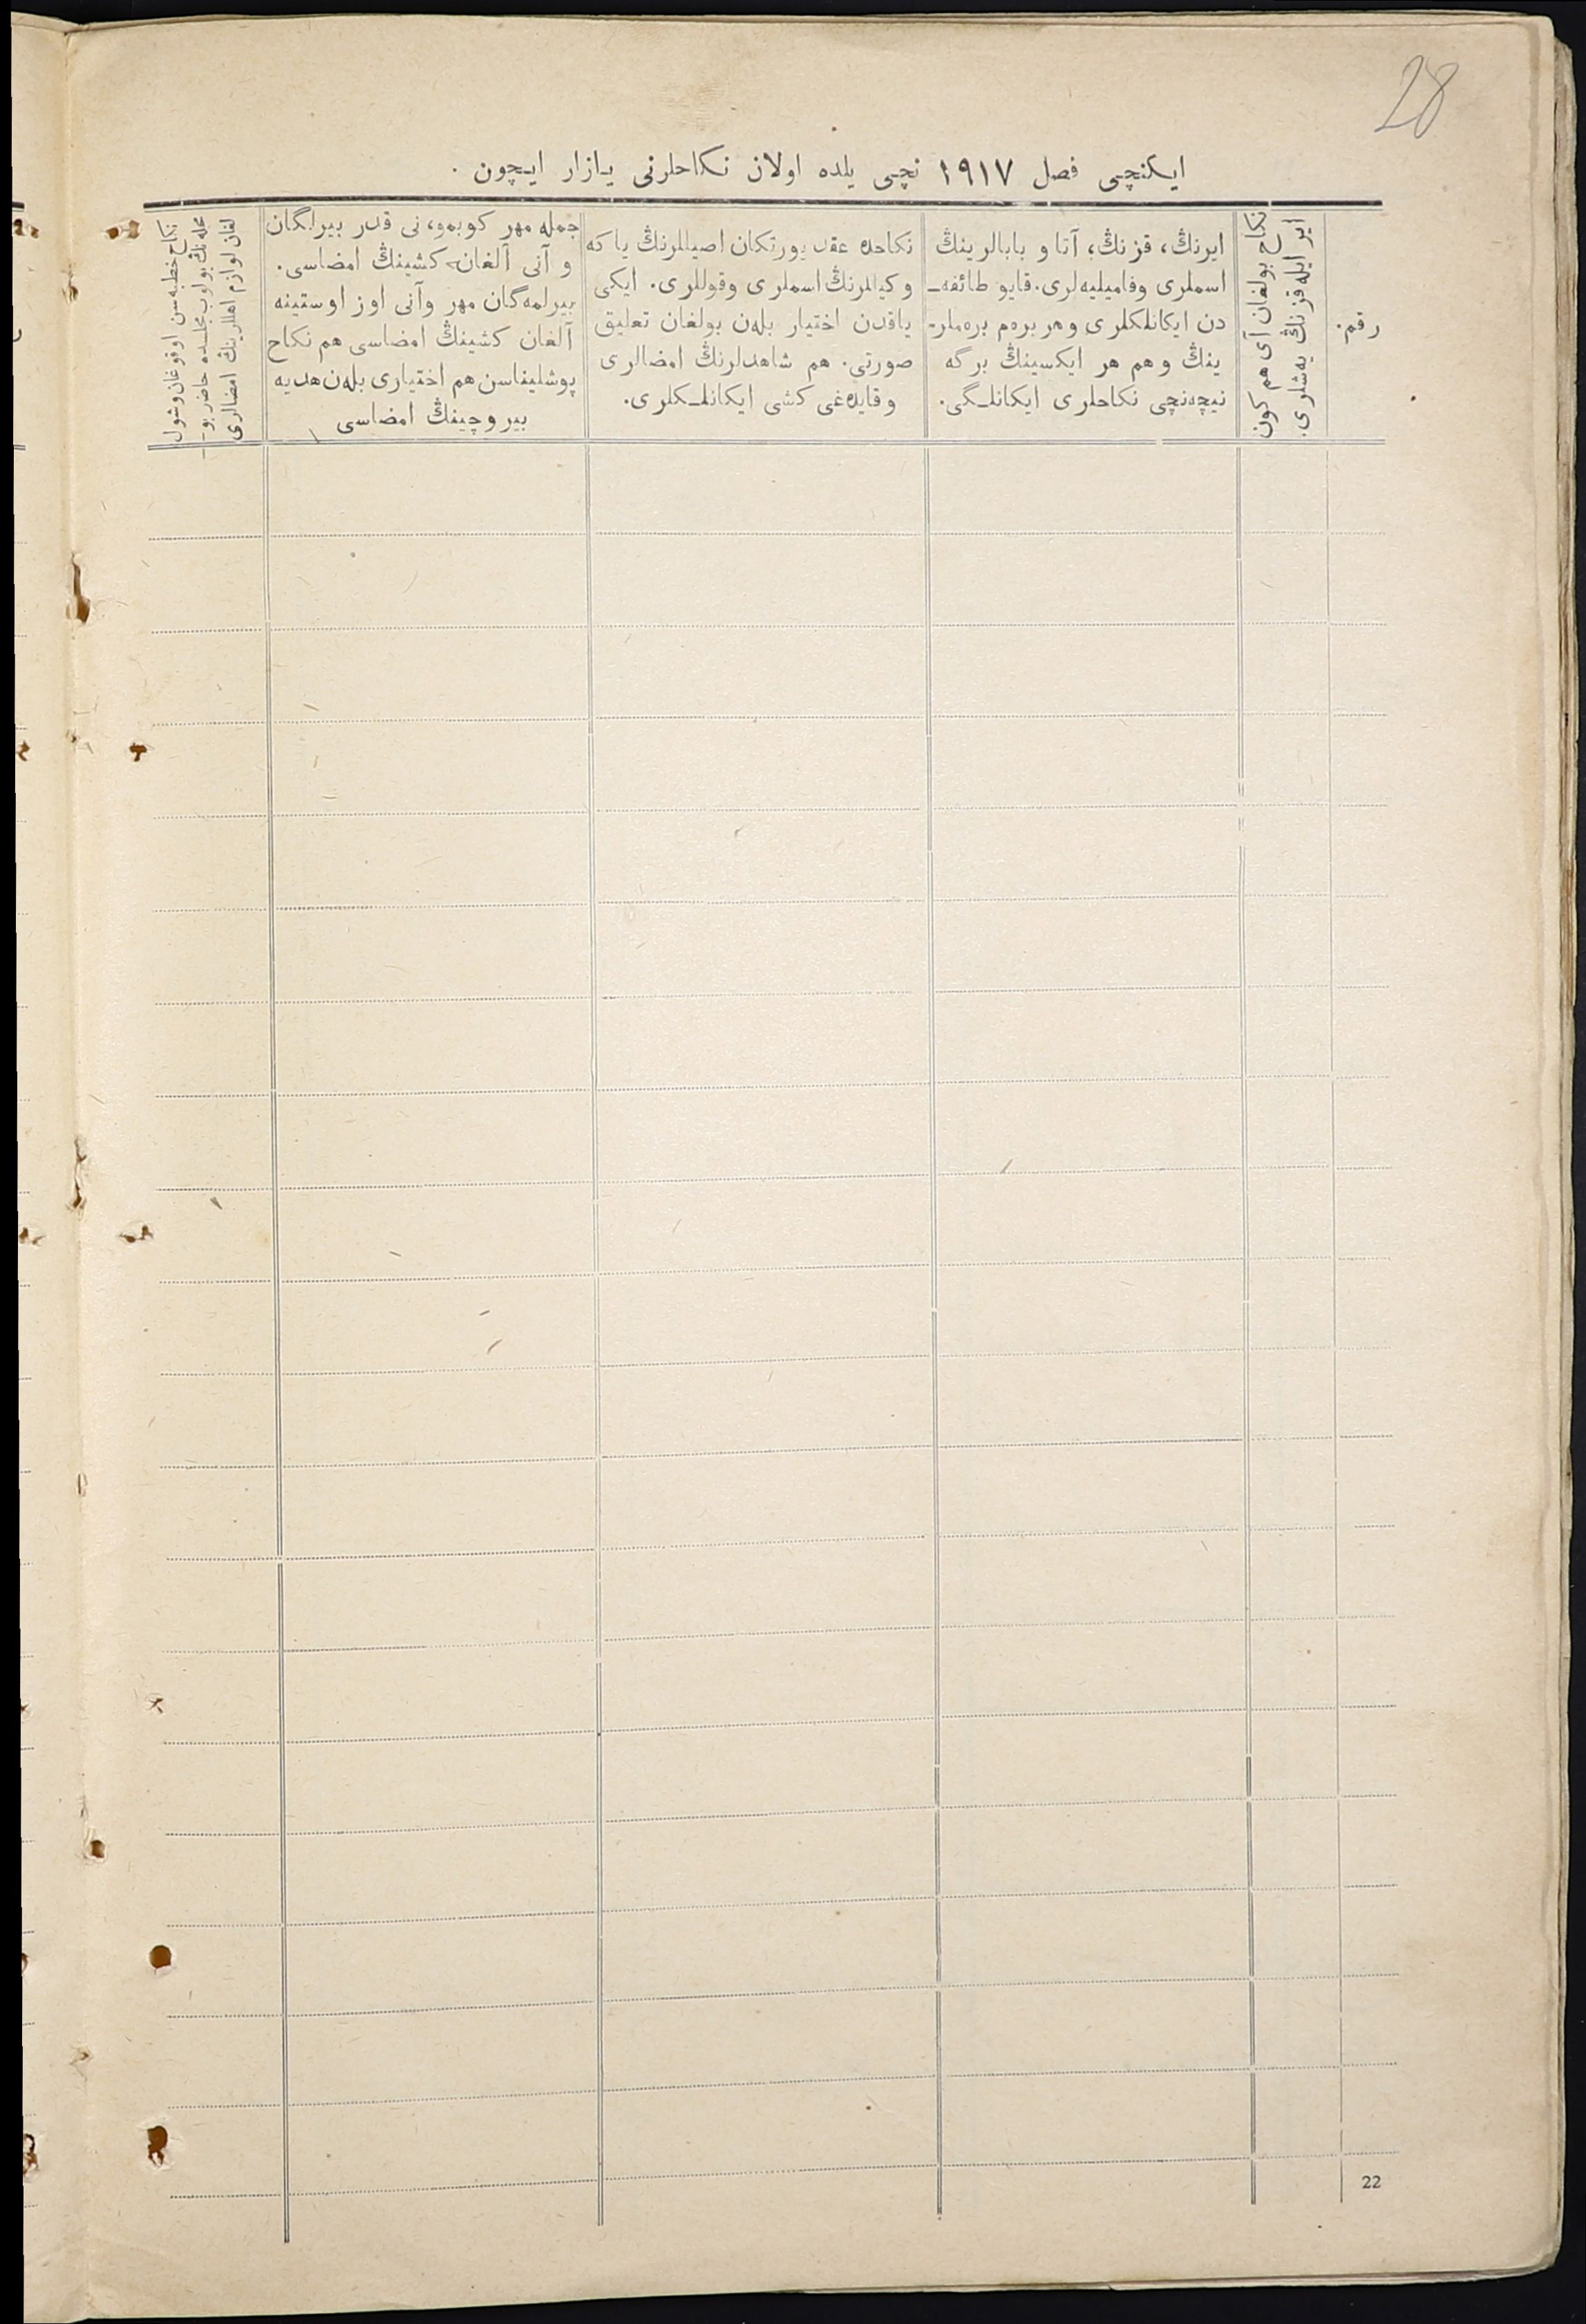 28
ایكنچی فصل ۱۹۱۷ نچی یلده اولان نكاحلرنی یازار ایچون .
رقم.
نكاح بولغان آی هم كون
ایر ایله قزنڭ یه‌شلری.
ایرنڭ، قزنڭ، آتا و بابالرینڭ
اسملری وفامیلیه‌لری. قایو طائفه‌ـ
دن ایكانلكلری وهر بره‌م بره‌ملر-
ینڭ وهم هر ایكسینڭ برگه
نیچه‌نچی نكاحلری ایكانلـگی.
نكاحده عقد یورتكان اصیللرنڭ یا كه
وكیللرنڭ اسملری وقوللری. ایكی
یاقدن اختیار بله‌ن بولغان تعلیق
صورتی. هم شاهدلرنڭ امضالری
وقایده‌غی كشی ایكانلـكلری.
جمله مهر كوبمو، نی قدر بیرلگان
و آنی آلغان كشینڭ امضاسی.
بیرلمه‌گان مهر وآنی اوز اوستینه
آلغان كشینڭ امضاسی هم نكاح
پوشلیناسن هم اختیاری بله‌ن هدیه
بیروچینڭ امضاسی
نكاح خطبه‌سن اوقوغان وشول
محله‌نڭ بولوب مجلسده حاضر بو-
لغان لوازم اهللرینڭ امضالری
22